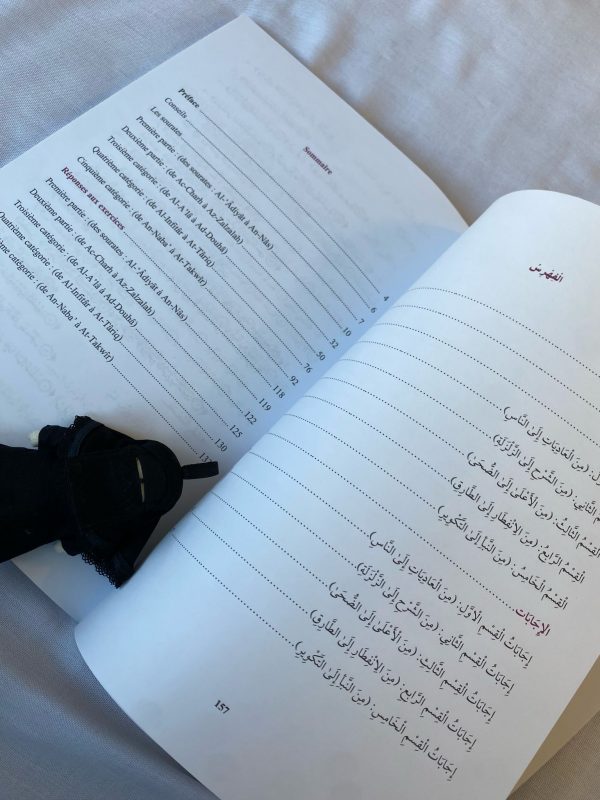 Sommaire
Préface ........ 4
Conseils ........ 6
Les sourates ........ 7
Première partie : (des sourates : Al-‘Âdiyât à An-Nâs) ........ 10
Deuxième partie : (de Ac-Charh à Az-Zalzalah) ........ 32
Troisième catégorie : (de Al-A‘lâ à Ad-Douhâ) ........ 50
Quatrième catégorie : (de Al-Infitâr à At-Târiq) ........ 76
Cinquième catégorie : (de An-Naba’ à At-Takwîr) ........ 92
Réponses aux exercices ........ 118
Première partie : (des sourates : Al-‘Âdiyât à An-Nâs) ........ 119
Deuxième partie : (de Ac-Charh à Az-Zalzalah) ........ 122
Troisième catégorie : (de Al-A‘lâ à Ad-Douhâ) ........ 125
Quatrième catégorie : (de Al-Infitâr à At-Târiq) ........ 130
catégorie : (de An-Naba’ à At-Takwîr)
الْفِهْرِسُ
(مِنَ الْعَادِيَاتِ إِلَىٰ النَّاسِ)
الثَّانِي: (مِنَ الشَّرْحِ إِلَىٰ الزَّلْزَلَةِ)
الْقِسْمُ الثَّالِثُ: (مِنَ الْأَعْلَىٰ إِلَىٰ الضُّحَىٰ)
الْقِسْمُ الرَّابِعُ: (مِنَ الْاِنْفِطَارِ إِلَىٰ الطَّارِقِ)
الْقِسْمُ الْخَامِسُ: (مِنَ النَّبَأِ إِلَىٰ التَّكْوِيرِ)
الْإِجَابَاتُ
إِجَابَاتُ الْقِسْمِ الْأَوَّلِ: (مِنَ الْعَادِيَاتِ إِلَىٰ النَّاسِ)
إِجَابَاتُ الْقِسْمِ الثَّانِي: (مِنَ الشَّرْحِ إِلَىٰ الزَّلْزَلَةِ)
إِجَابَاتُ الْقِسْمِ الثَّالِثِ: (مِنَ الْأَعْلَىٰ إِلَىٰ الضُّحَىٰ)
إِجَابَاتُ الْقِسْمِ الرَّابِعِ: (مِنَ الْاِنْفِطَارِ إِلَىٰ الطَّارِقِ)
إِجَابَاتُ الْقِسْمِ الْخَامِسِ: (مِنَ النَّبَأِ إِلَىٰ التَّكْوِيرِ)
157